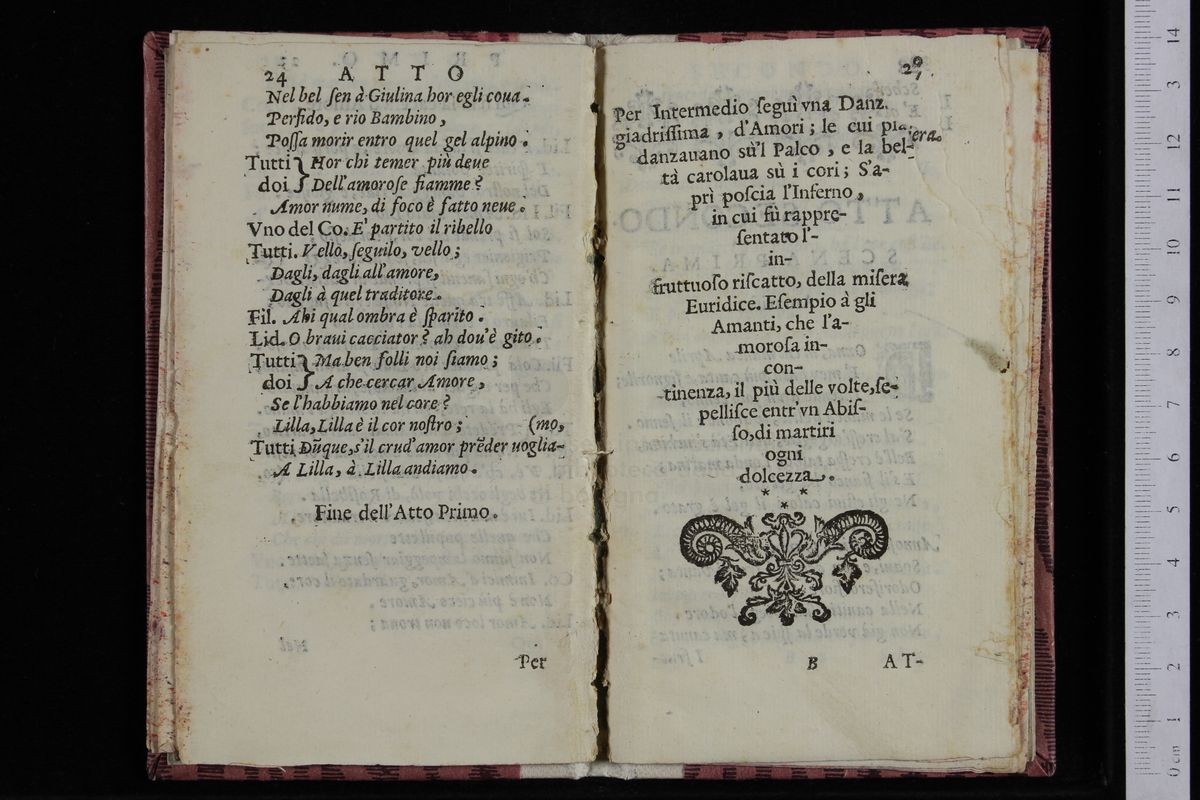 24 ATTO
Nel bel ſen à Giulina hor egli coua.
Perfido, e rio Bambino,
Poſſa morir entro quel gel alpino.
Tutti } Hor chi temer più deue
doi } Dell'amoroſe fiamme?
Amor nume, di foco è fatto neue.
Vno del Co. E' partito il ribello
Tutti. Vello, ſeguilo, vello;
Dagli, dagli all'amore,
Dagli à quel traditore.
Fil. Ahi qual ombra è ſparito.
Lid. O braui cacciator? ah dou'è gito.
Tutti } Ma ben folli noi ſiamo;
doi } A che cercar Amore,
Se l'habbiamo nel core?
Lilla, Lilla è il cor noſtro; (mo,
Tutti Dũque, s'il crud'amor prẽder uoglia-
A Lilla, à Lilla andiamo.
Fine dell'Atto Primo.
Per
Per Intermedio ſeguì vna Danz.
giadriſſima, d'Amori; le cui
danzauano sù'l Palco, e la bel-
tà carolaua sù i cori; S'a-
prì poſcia l'Inferno,
in cui fù rappre-
ſentato l'-
in-
fruttuoſo riſcatto, della miſera
Euridice. Eſempio à gli
Amanti, che l'a-
moroſa in-
con-
tinenza, il più delle volte, ſe-
pelliſce entr'vn Abiſ-
ſo, di martiri
ogni
dolcezza.
* *
*
B AT-